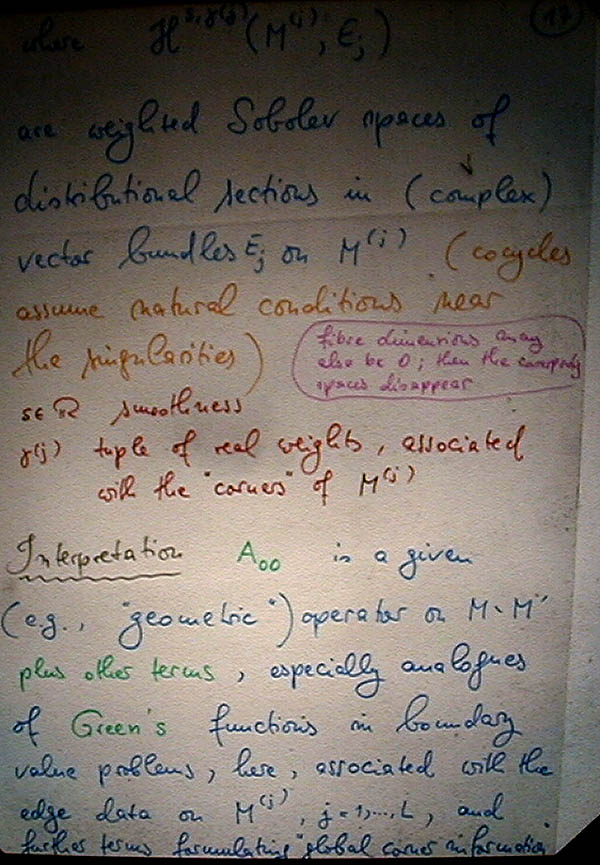 17
where H^{s,γ(j)}(M^{(j)}, E_j)
are weighted Sobolev spaces of
distributional sections in (complex)
vector bundles E_j on M^{(j)} (cocycles
assume natural conditions near
the singularities)
fibre dimensions may
also be 0; then the
spaces disappear
s∈ℝ smoothness
γ(j) tuple of real weights, associated
with the "corners" of M^{(j)}
Interpretation A_{00} is a given
(e.g., "geometric") operator on M \ M'
plus other terms, especially analogues
of Green's functions in boundary
value problems, here, associated with the
edge data on M^{(j)}, j=1,...,L, and
further terms formulating "global corner information"